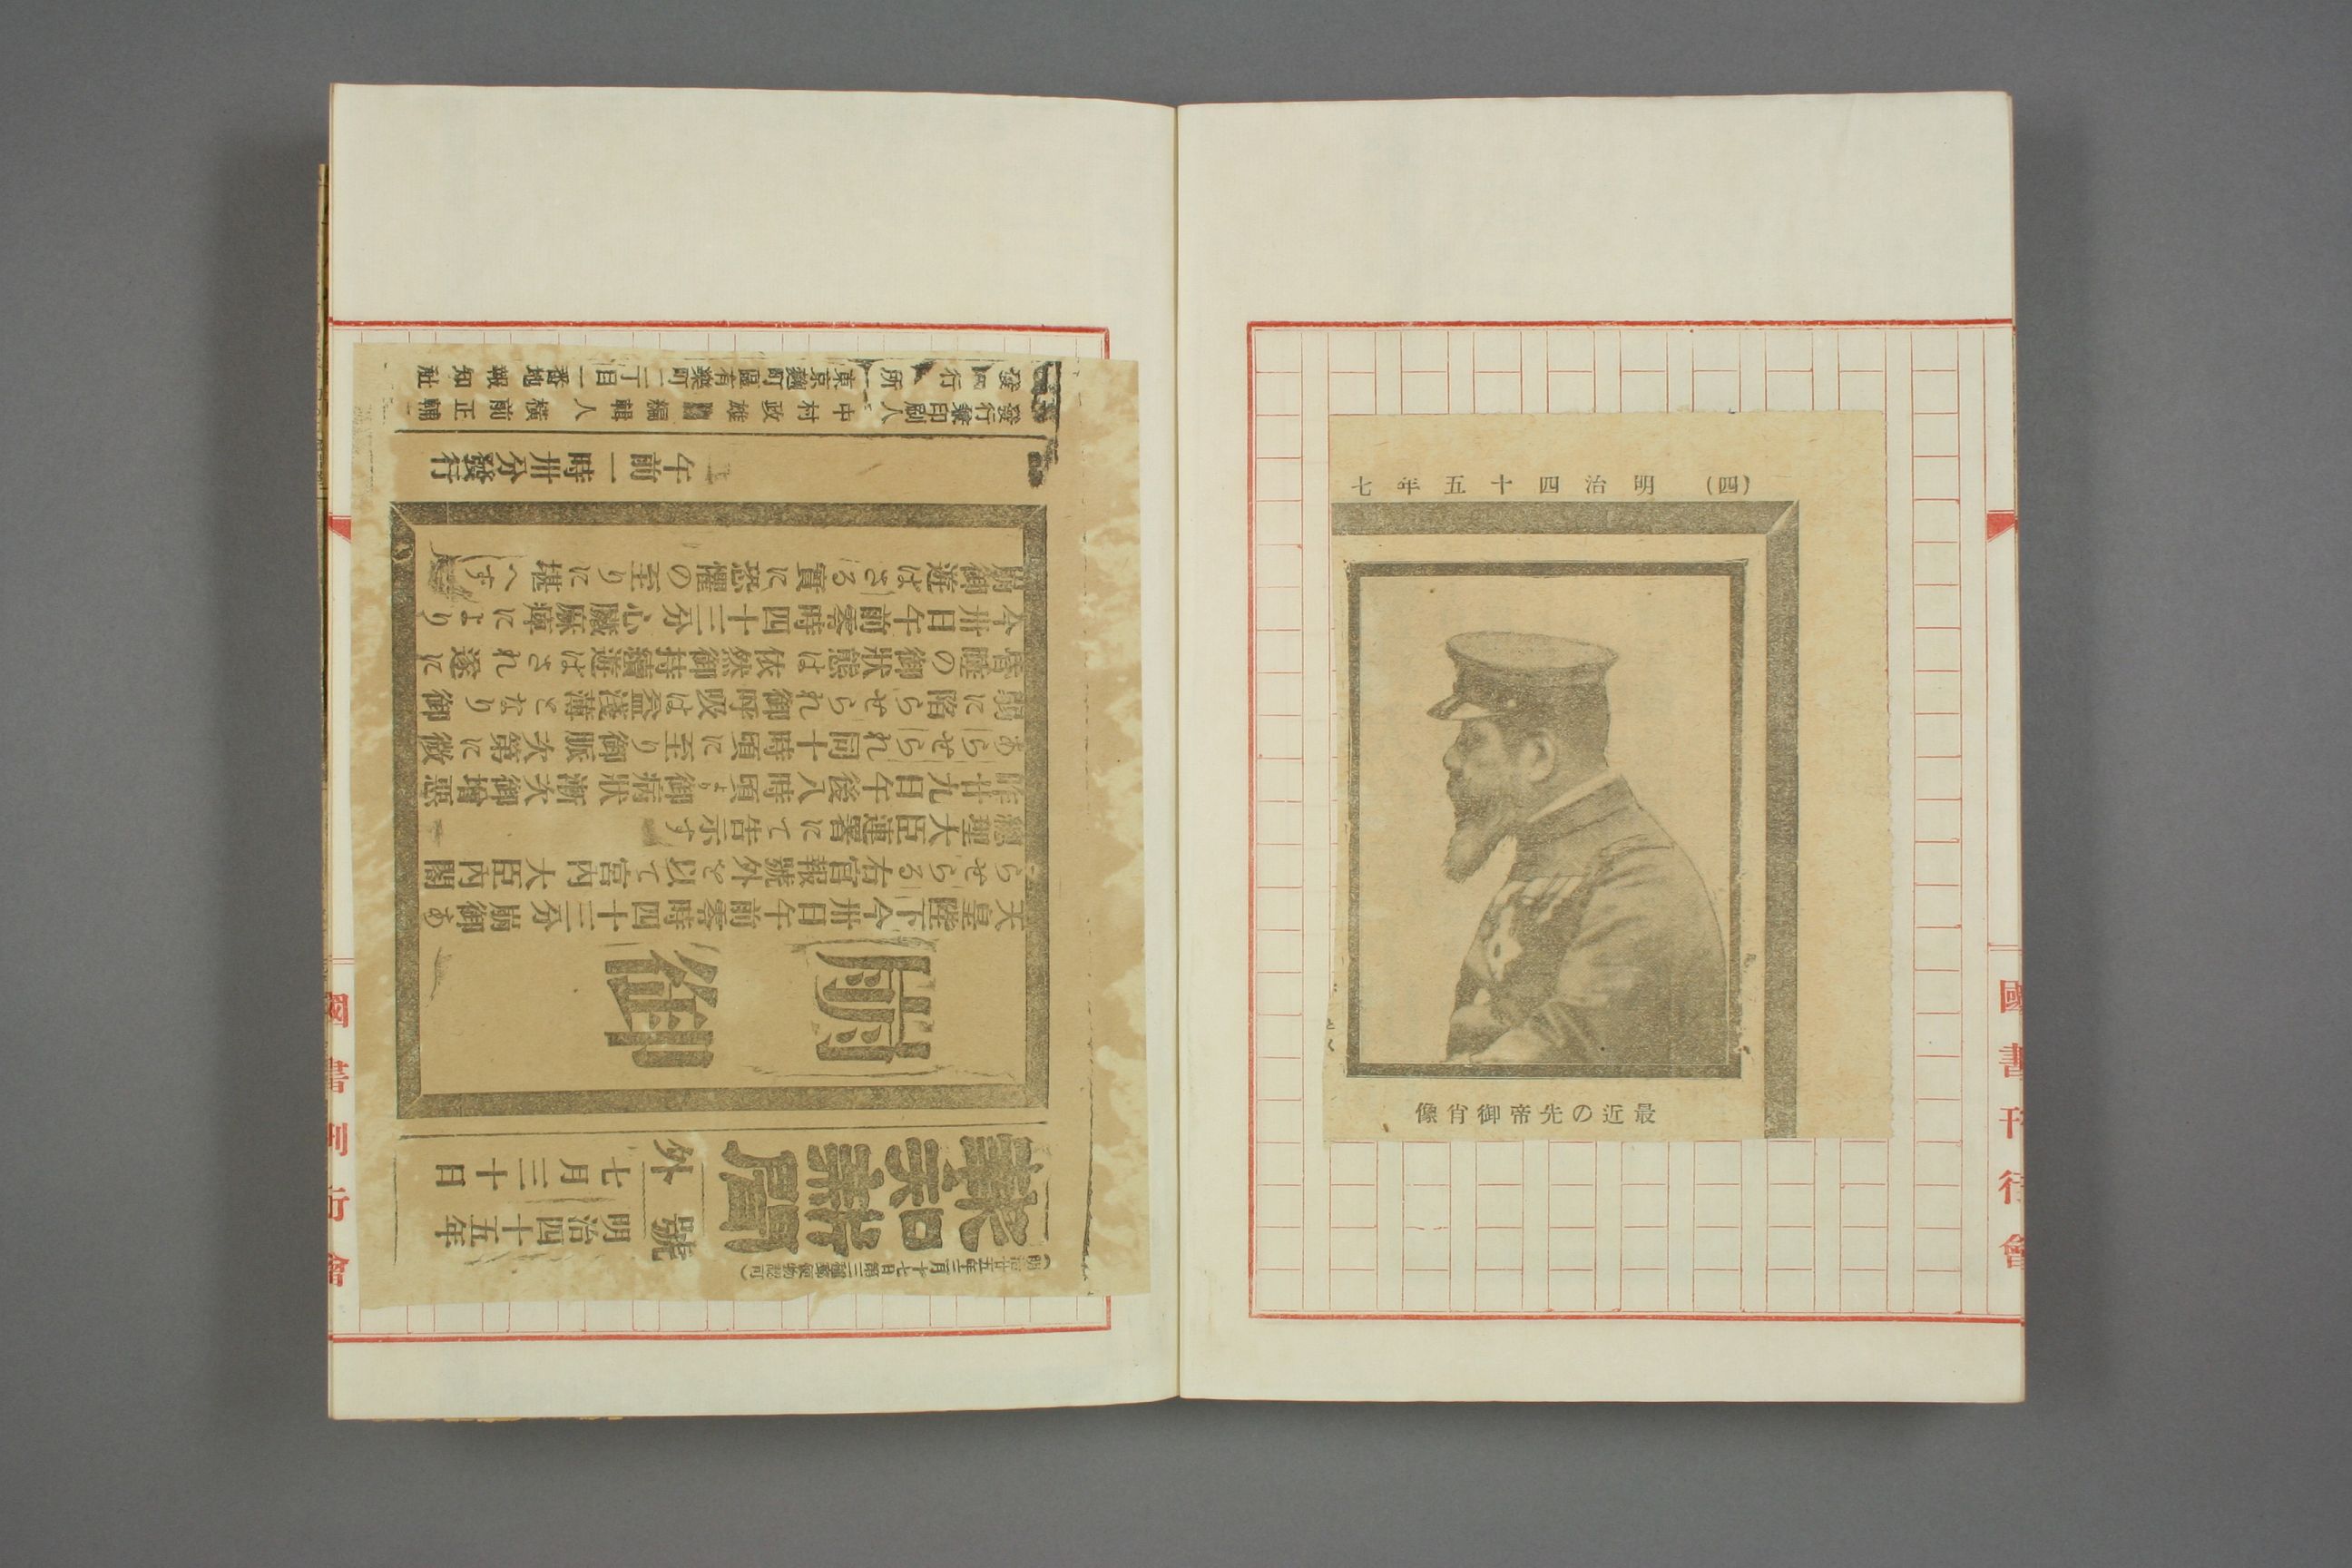 (四) 明治四十五年七
最近の先帝御肖像
國書刊行會
(明治廿五年三月十七日第三種郵便物認可)
報知新聞
號外
明治四十五年
七月三十日
崩御
天皇陛下今卅日午前零時四十三分崩御あ
らせらる右官報號外を以て宮内大臣内閣
總理大臣連署にて告示す
昨廿九日午後八時頃より御病狀漸次御增惡
あらせられ同十時頃に至り御脈次第に微
弱に陷らせられ御呼吸は益淺薄となり御
昏睡の御狀態は依然御持續遊はされ遂に
今卅日午前零時四十三分心臟麻痺により
崩御遊はさる實に恐懼の至りに堪へす
午前一時卅分發行
發行兼印刷人 中村政雄 編輯人 横前正輔
發行所 東京麴町區有樂町一丁目一番地 報知社
國書刊行會